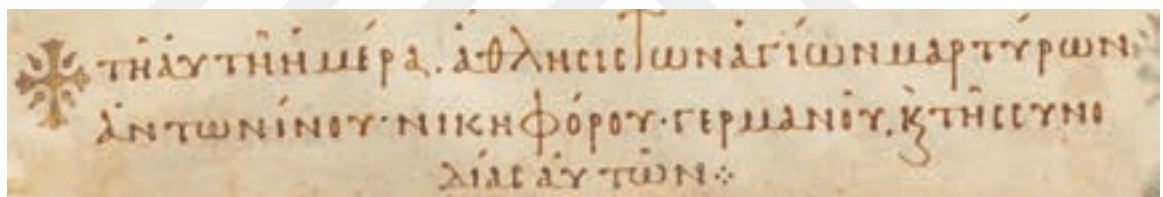 τῆ αὐτῆ ἡμέρα. ἄθλησις τῶν ἁγίων μαρτύρων
ἀντωνίνου· νικηφόρου· γερμανοῦ, ϗ τῆς συνο
δίας αὐτῶν⁘